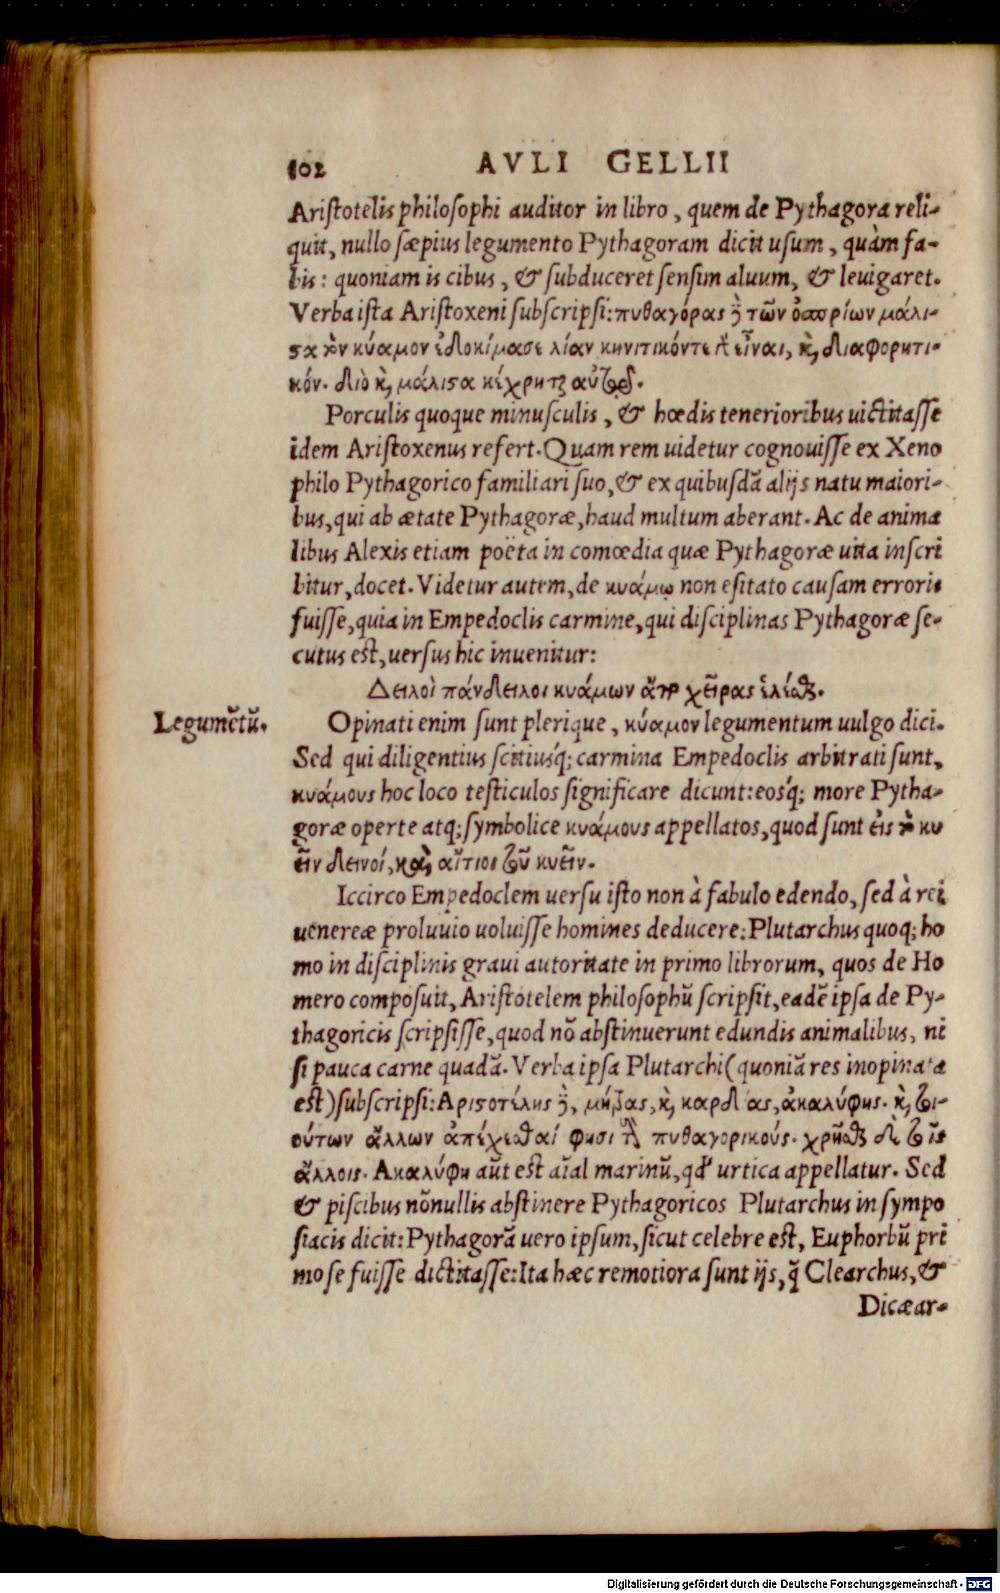 102 AVLI GELLII
Aristotelis philosophi auditor in libro, quem de Pythagora reli-
quit, nullo sæpius legumento Pythagoram dicit usum, quàm fa-
bis: quoniam is cibus, & subduceret sensim aluum, & leuigaret.
Verba ista Aristoxeni subscripsi: πυθαγόρας δὲ τῶν ὀσπρίων μάλι-
στα τὸν κύαμον ἐδοκίμασε λίαν κηνιτικόντε εἶναι, καὶ διαφορητι-
κόν. διὸ καὶ μάλιστα κέχρηται αὐτῷ.
Porculis quoque minusculis, & hœdis tenerioribus uictitasse
idem Aristoxenus refert. Quam rem uidetur cognouisse ex Xeno
philo Pythagorico familiari suo, & ex quibusdã alijs natu maiori-
bus, qui ab ætate Pythagoræ, haud multum aberant. Ac de anima
libus Alexis etiam poëta in comœdia quæ Pythagoræ uita inscri
bitur, docet. Videtur autem, de κυάμῳ non esitato causam erroris
fuisse, quia in Empedoclis carmine, qui disciplinas Pythagoræ se-
cutus est, uersus hic inuenitur:
Δειλοὶ πάνδειλοι κυάμων ἄπο χεῖρας ἑλέσθαι.
Legumẽtũ.
Opinati enim sunt plerique, κύαμον legumentum uulgo dici.
Sed qui diligentius scitiusq́; carmina Empedoclis arbitrati sunt,
κυάμους hoc loco testiculos significare dicunt: eosq́; more Pytha-
goræ operte atq; symbolice κυάμους appellatos, quod sunt εἰς τὸ κυ
εῖν δεινοί, καὶ αἴτιοι τοῦ κυεῖν.
Iccirco Empedoclem uersu isto non à fabulo edendo, sed à rei
uenereæ proluuio uoluisse homines deducere: Plutarchus quoq; ho
mo in disciplinis graui autoritate in primo librorum, quos de Ho
mero composuit, Aristotelem philosophũ scripsit, eadẽ ipsa de Py-
thagoricis scripsisse, quod nõ abstinuerunt edundis animalibus, ni
si pauca carne quadã. Verba ipsa Plutarchi (quoniã res inopinata
est) subscripsi: Αριστοτέλης δὲ, μήτρας, καὶ καρδίας, ἀκαλύφης. καὶ τοι-
ούτων ἄλλων ἀπέχεσθαί φησι τοὺς πυθαγορικούς. χρῆσθαι δὲ τοῖς
ἄλλοις. Ακαλύφη aũt est aĩal marinũ, qđ urtica appellatur. Sed
& piscibus nõnullis abstinere Pythagoricos Plutarchus in sympo
siacis dicit: Pythagorã uero ipsum, sicut celebre est, Euphorbũ pri
mo se fuisse dictitasse: Ita hæc remotiora sunt ijs, q̃ Clearchus, &
Dicæar-
Digitalisierung gefördert durch die Deutsche Forschungsgemeinschaft - DFG